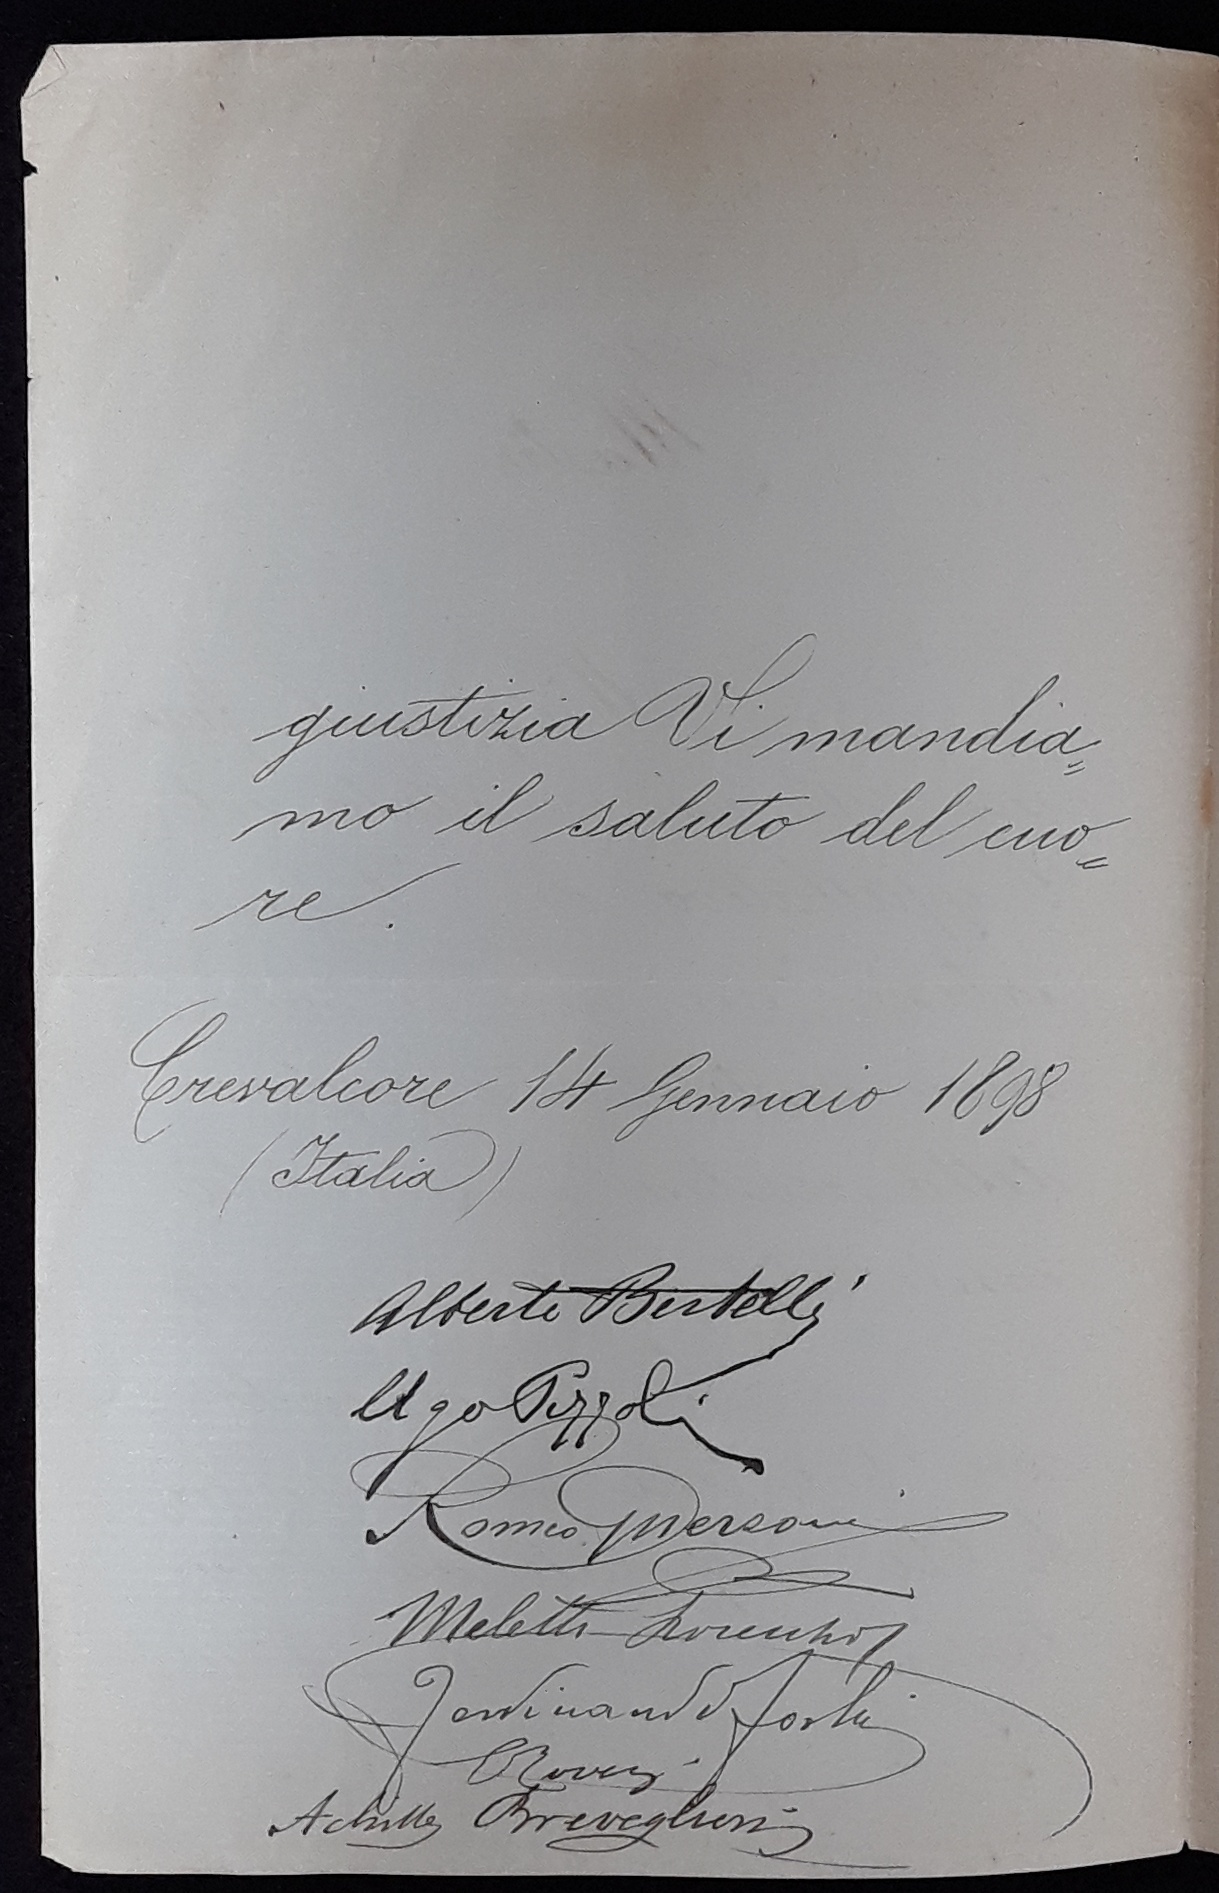 giustizia Vi mandia=
mo il saluto del cuo=
re.
Crevalcore 14 Gennaio 1898
(Italia)
Alberto Bertelli
Ugo Pizzoli
Romeo
Meletti
Ferdinando
Achille Breveglieri